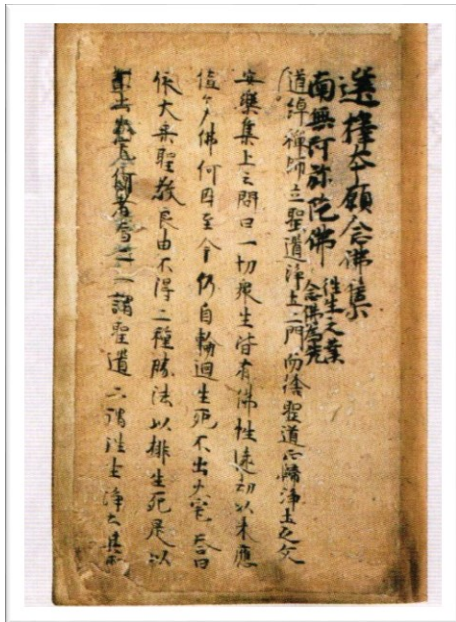 選擇本願念佛集
南無阿弥陀佛
往生之業
念佛為先
道綽禅師立聖道浄土二門而捨聖道正帰浄土之文
安樂集上云問曰一切衆生皆有佛性遠劫以来應
值多佛何因至今仍自輪迴生死不出火宅答曰
依大乗聖教良由不得二種勝法以排生死是以
不出火宅何者為二一謂聖道二謂往生浄土其